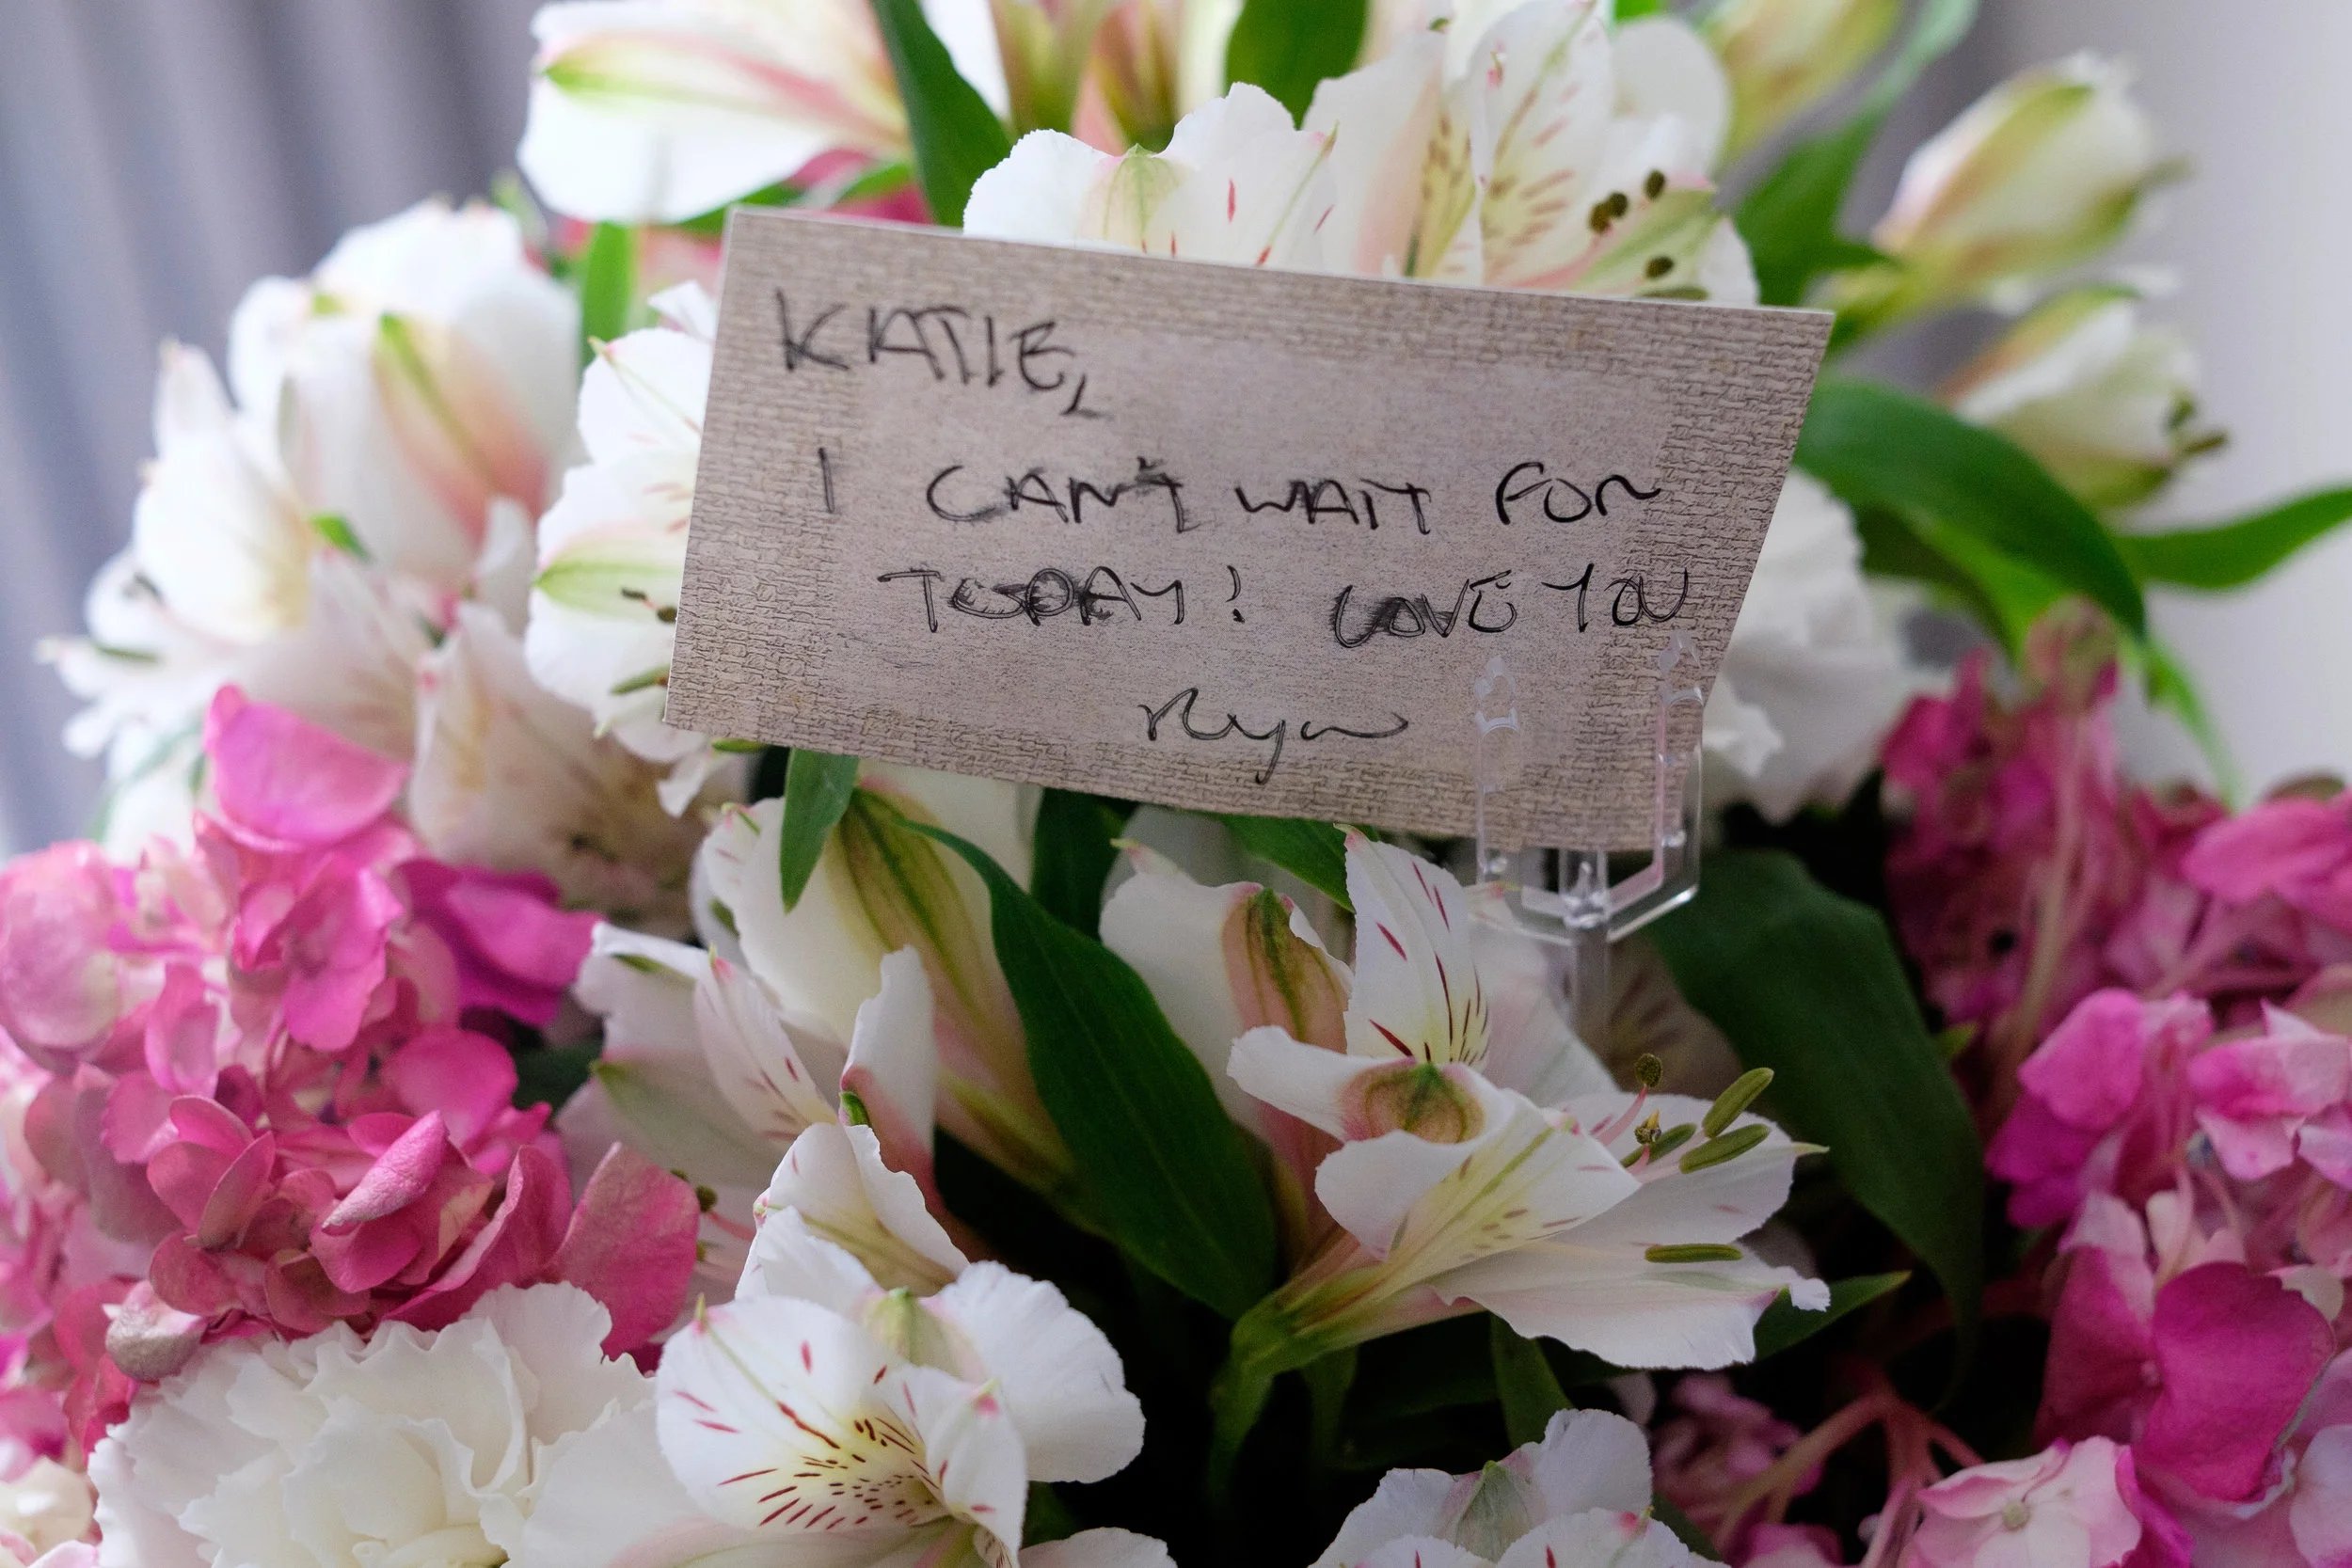 KATIE,
I CAN'T WAIT FOR
TODAY! LOVE YOU
Ryan